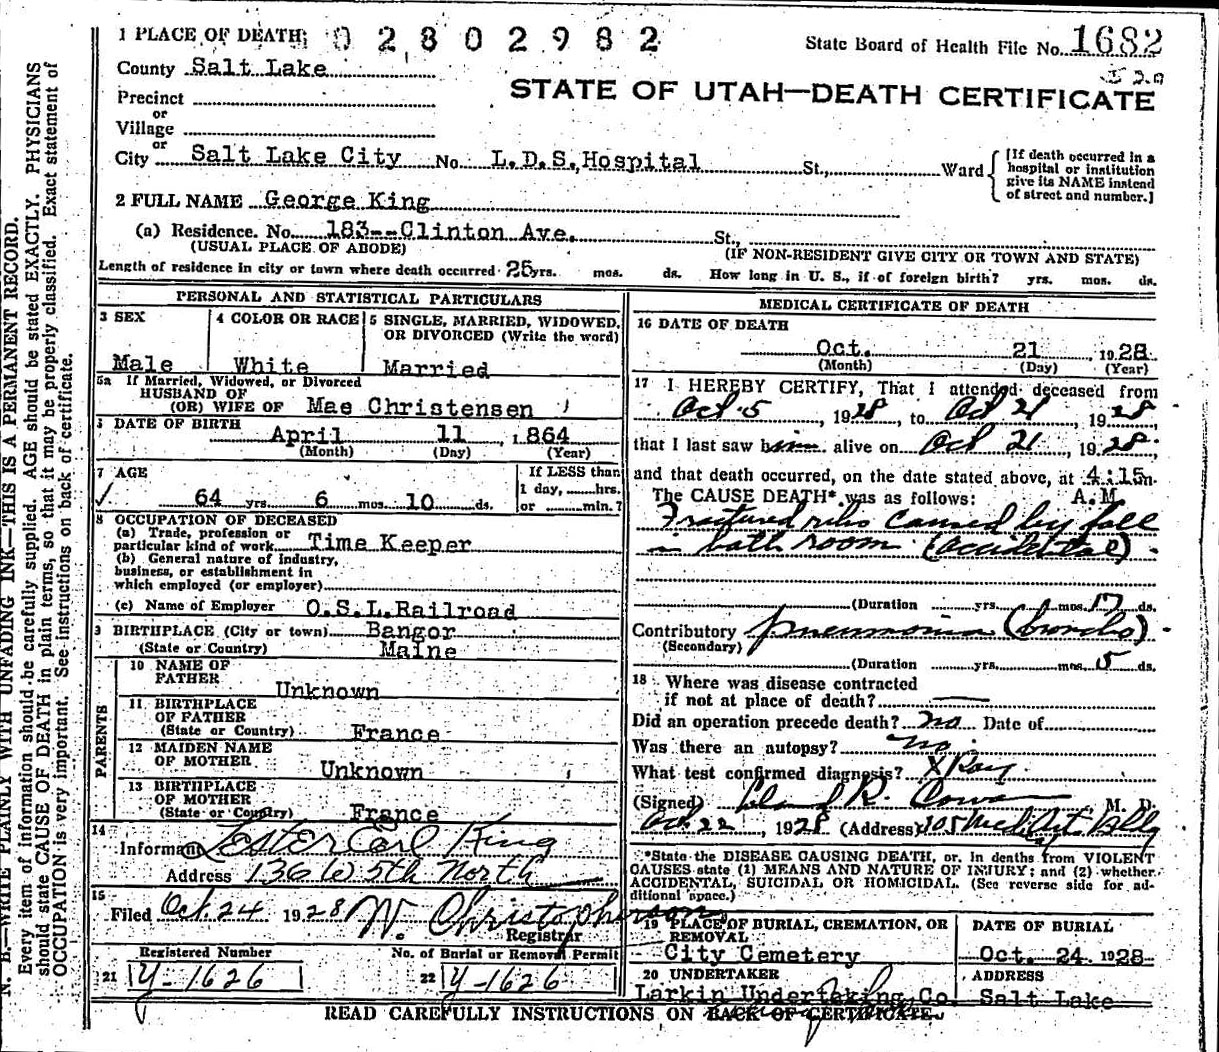 1 PLACE OF DEATH; 02802982
State Board of Health File No. 1682
County Salt Lake
STATE OF UTAH—DEATH CERTIFICATE
Precinct
or
Village
or
City Salt Lake City No. L.D.S. Hospital St., Ward
[If death occurred in a hospital or institution give its NAME instead of street and number.]
2 FULL NAME George King
(a) Residence. No. 183--Clinton Ave. St.,
(USUAL PLACE OF ABODE) (IF NON-RESIDENT GIVE CITY OR TOWN AND STATE)
Length of residence in city or town where death occurred 25 yrs. mos. ds. How long in U. S., if of foreign birth? yrs. mos. ds.
PERSONAL AND STATISTICAL PARTICULARS
3 SEX
Male
4 COLOR OR RACE
White
5 SINGLE, MARRIED, WIDOWED, OR DIVORCED (Write the word)
Married
5a If Married, Widowed, or Divorced
HUSBAND OF
(OR) WIFE OF Mae Christensen
DATE OF BIRTH
April 11 1864
(Month) (Day) (Year)
7 AGE
64 yrs. 6 mos. 10 ds.
If LESS than
1 day, hrs.
or min.?
8 OCCUPATION OF DECEASED
(a) Trade, profession or
particular kind of work Time Keeper
(b) General nature of industry,
business, or establishment in
which employed (or employer)
(c) Name of Employer O.S.L. Railroad
9 BIRTHPLACE (City or town) Bangor
(State or Country) Maine
PARENTS
10 NAME OF
FATHER
Unknown
11 BIRTHPLACE
OF FATHER
(State or Country) France
12 MAIDEN NAME
OF MOTHER
Unknown
13 BIRTHPLACE
OF MOTHER
(State or Country) France
14
Informant Lester Earl King
Address 136 W 5th North
15
Filed Oct. 24 1928 W. Christopherson
Registrar
Registered Number
21 Y-1626
No. of Burial or Removal Permit
22 Y-1626
MEDICAL CERTIFICATE OF DEATH
16 DATE OF DEATH
Oct. 21 1928
(Month) (Day) (Year)
17 I HEREBY CERTIFY, That I attended deceased from
Oct. 5, 1928, to Oct 21, 1928,
that I last saw him alive on Oct 21, 1928,
and that death occurred, on the date stated above, at 4:15 m.
The CAUSE DEATH* was as follows: A.M.
Fractured ribs caused by fall
in bath room (accidental).
(Duration yrs. mos. 17 ds.
Contributory pneumonia (broncho)
(Secondary)
(Duration yrs. mos. 5 ds.
18 Where was disease contracted
if not at place of death?
Did an operation precede death? no Date of
Was there an autopsy? no
What test confirmed diagnosis? X Ray
(Signed) Leland R. Cowan M. D.
Oct 22, 1928 (Address) 105 Med Art. Bldg
*State the DISEASE CAUSING DEATH, or, in deaths from VIOLENT
CAUSES state (1) MEANS AND NATURE OF INJURY; and (2) whether
ACCIDENTAL, SUICIDAL OR HOMICIDAL. (See reverse side for ad-
ditional space.)
19 PLACE OF BURIAL, CREMATION, OR
REMOVAL
City Cemetery
DATE OF BURIAL
Oct. 24 1928
20 UNDERTAKER
Larkin Undertaking Co.
ADDRESS
Salt Lake
READ CAREFULLY INSTRUCTIONS ON BACK OF CERTIFICATE.
N. B.—WRITE PLAINLY WITH UNFADING INK—THIS IS A PERMANENT RECORD.
Every item of information should be carefully supplied. AGE should be stated EXACTLY. PHYSICIANS
should state CAUSE OF DEATH in plain terms, so that it may be properly classified. Exact statement of
OCCUPATION is very important. See instructions on back of certificate.